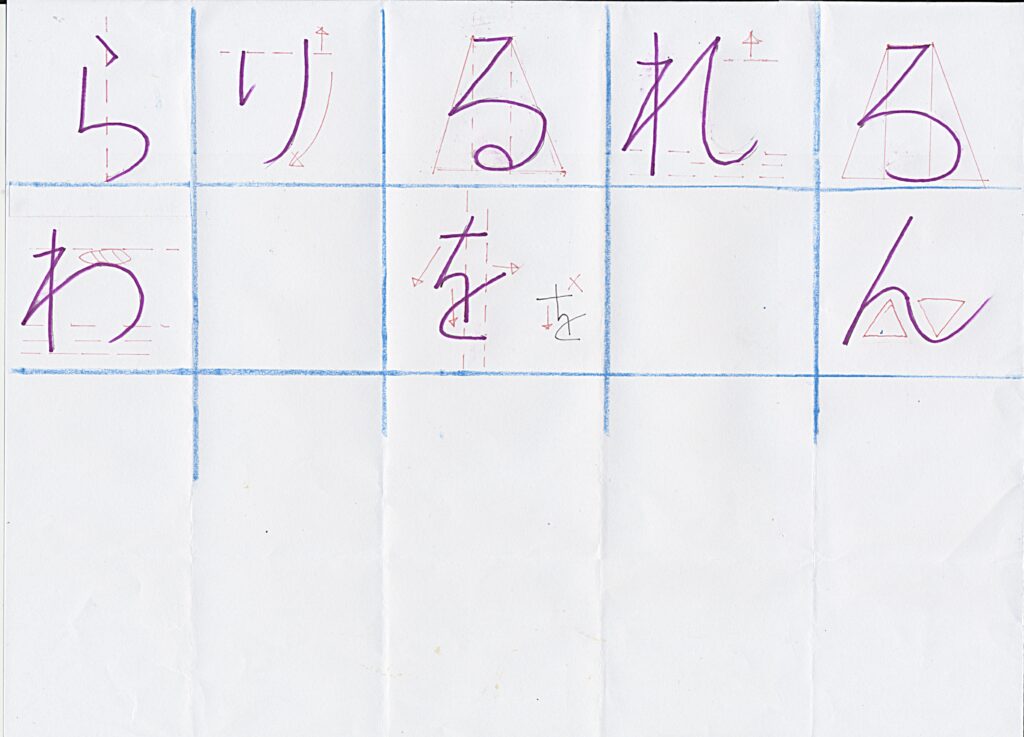 ら り る れ ろ
わ を を ん